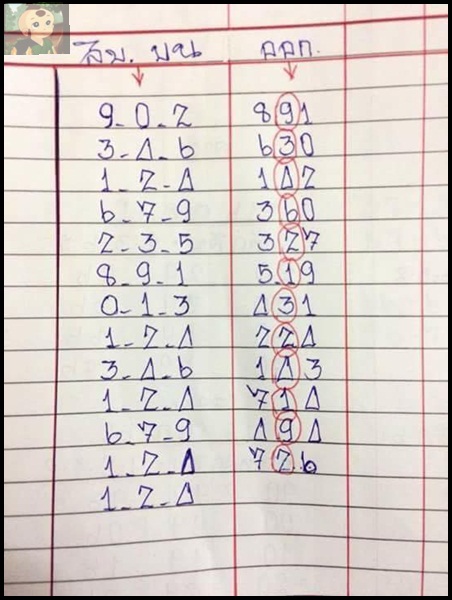 สิบ. บน ออก.
9-0-2 891
3-4-6 630
1-2-4 142
6-7-9 360
2-3-5 327
8-9-1 519
0-1-3 431
1-2-4 224
3-4-6 143
1-2-4 714
6-7-9 494
1-2-4 726
1-2-4